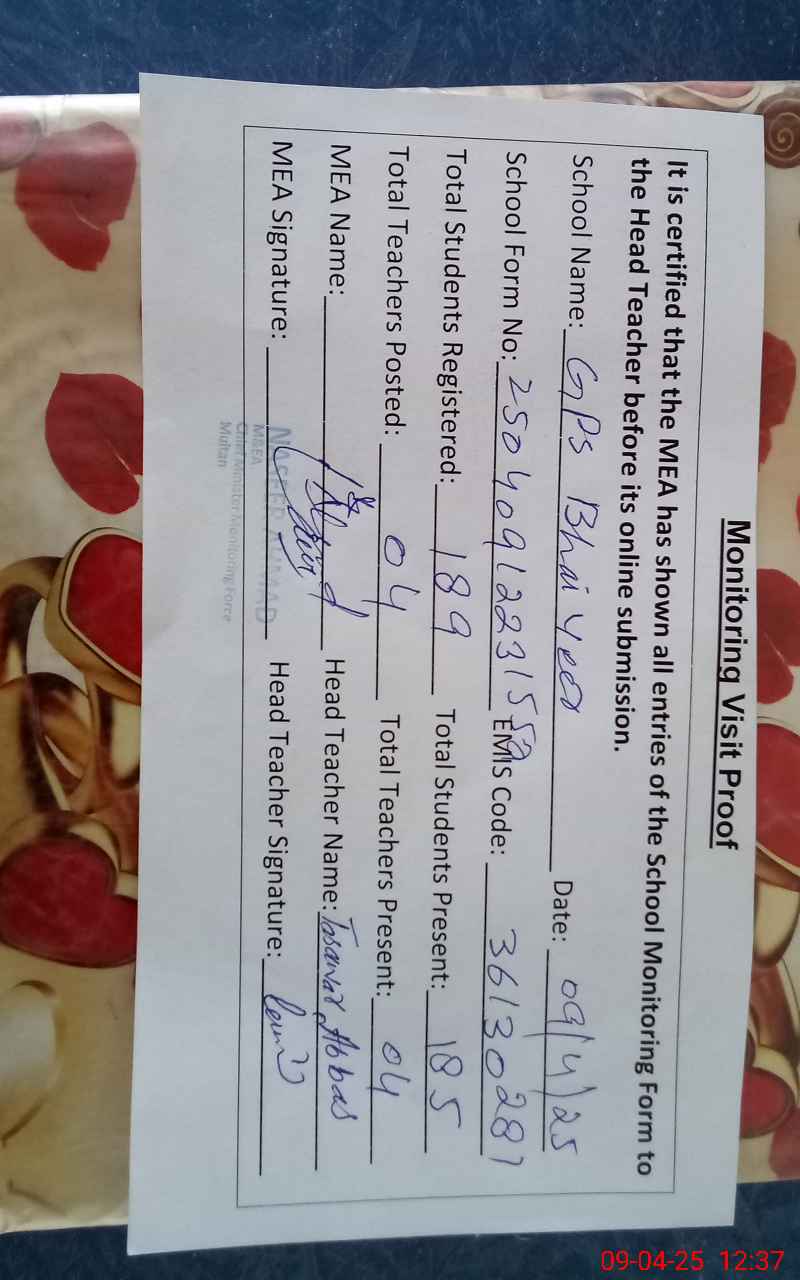 Monitoring Visit Proof
It is certified that the MEA has shown all entries of the School Monitoring Form to
the Head Teacher before its online submission.
School Name: GPS Bhai Date: 09/4/25
School Form No: EMIS Code: 36130287
Total Students Registered: 189 Total Students Present: 185
Total Teachers Posted: 04 Total Teachers Present: 04
MEA Name: Head Teacher Name: Tasawar Abbas
MEA Signature: Head Teacher Signature:
AHMAD
M&EA
Chief Minister Monitoring Force
Multan
09-04-25 12:37